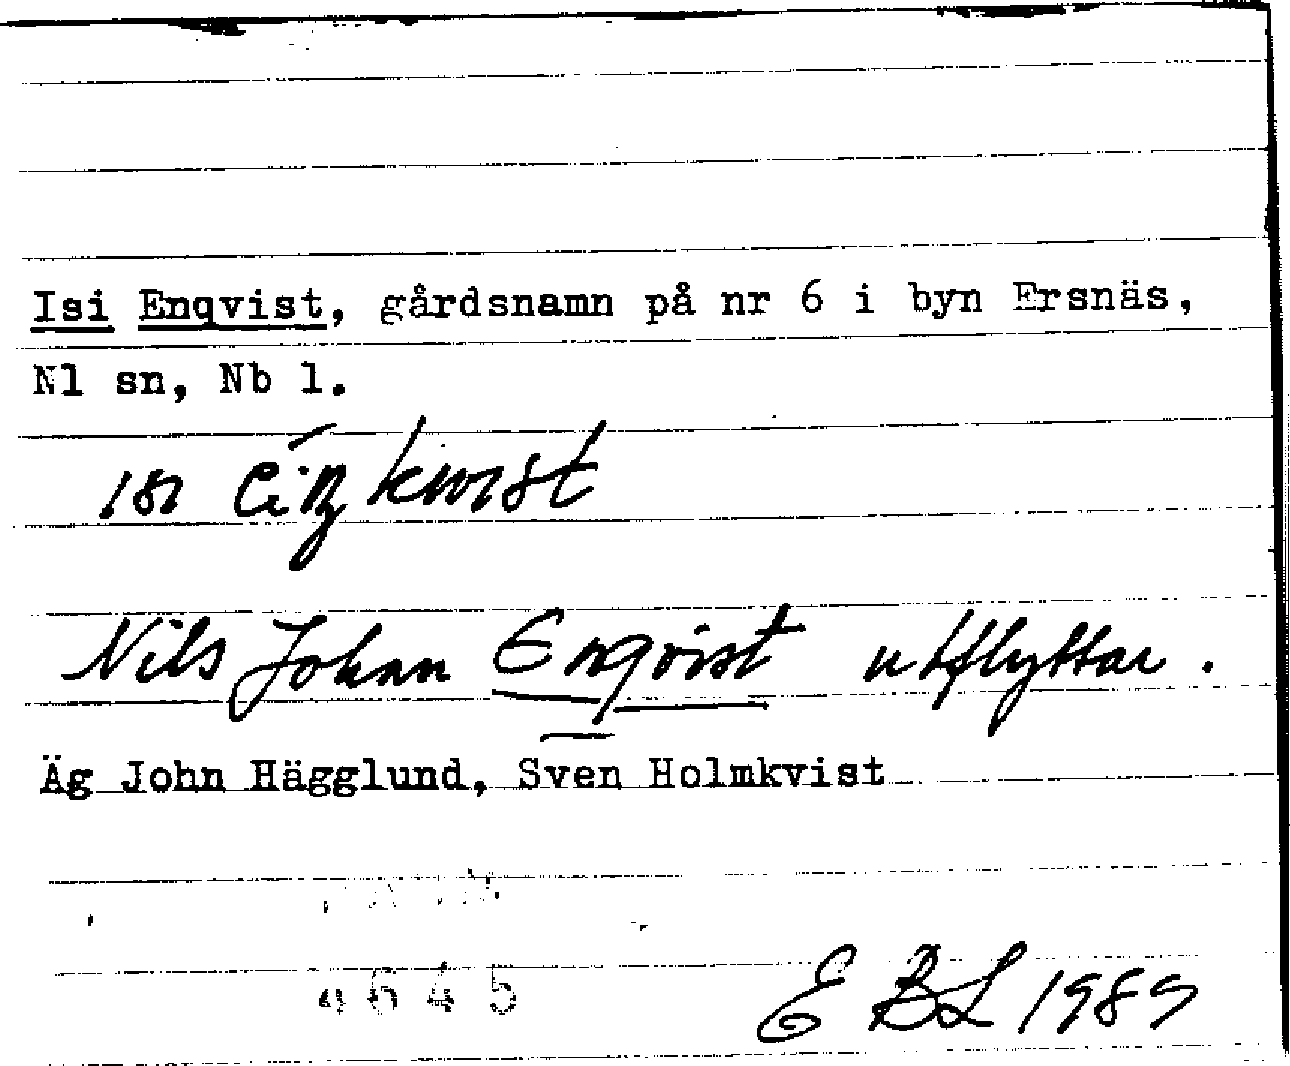 Isi Enqvist, gårdsnamn på nr 6 i byn Ersnäs,
Nl sn, Nb l.
Nils Johan Enqvist utflyttar.
Äg John Hägglund, Sven Holmkvist
4645
EBL 1989